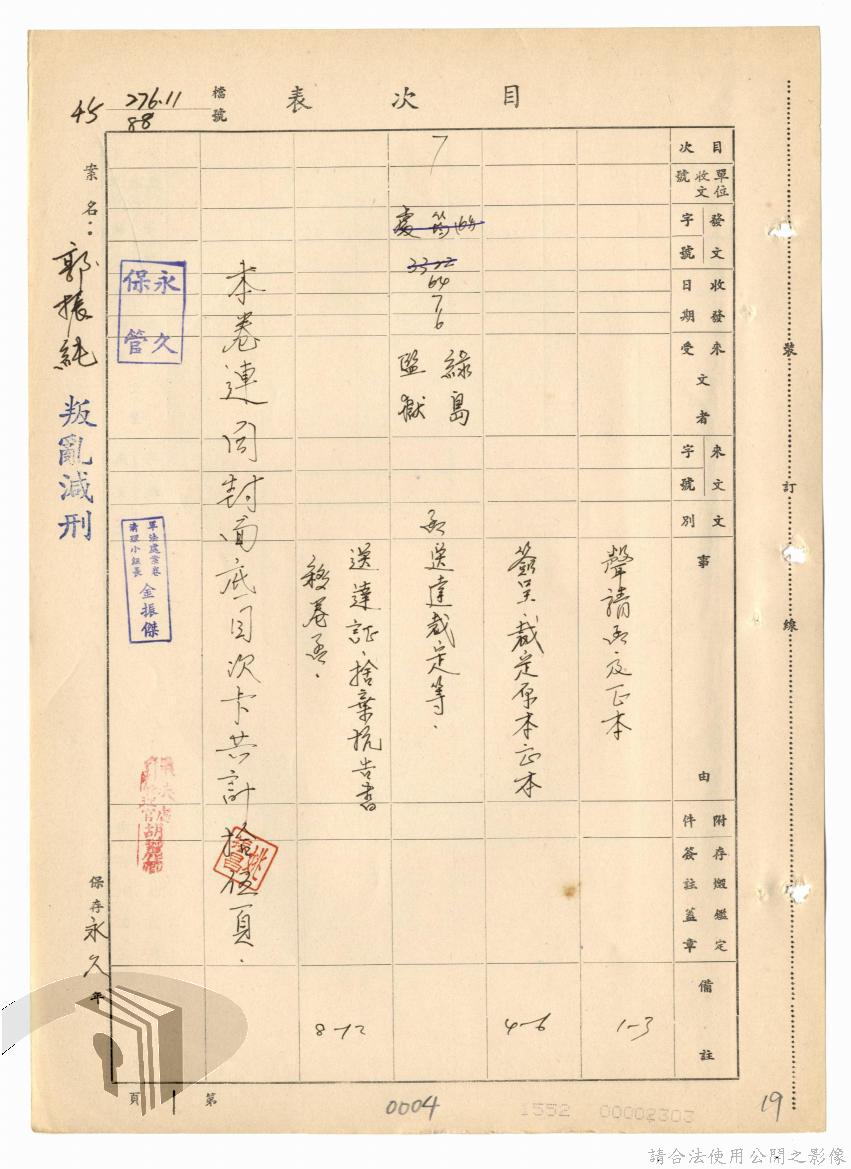 目次表
檔號
276.11
88
45
目次
單位收文號
發文字號
收發日期
來文者受
來文字號
文別
事由
附件
存燬鑑定簽註蓋章
備註
聲請函及正本
1-3
簽呈、裁定原本正本
4-6
7
64
7
6
綠島
監獄
函送達裁定等.
送達証、捨棄抗告書
移卷函.
8-12
本卷連同封面底目次卡共計拾伍頁.
永久
保管
軍法處案卷
清理小組長
金振傑
案名:郭振純 叛亂減刑
保存永久年
裝訂線
第1頁
0004
1552 00002303
19
請合法使用公開之影像